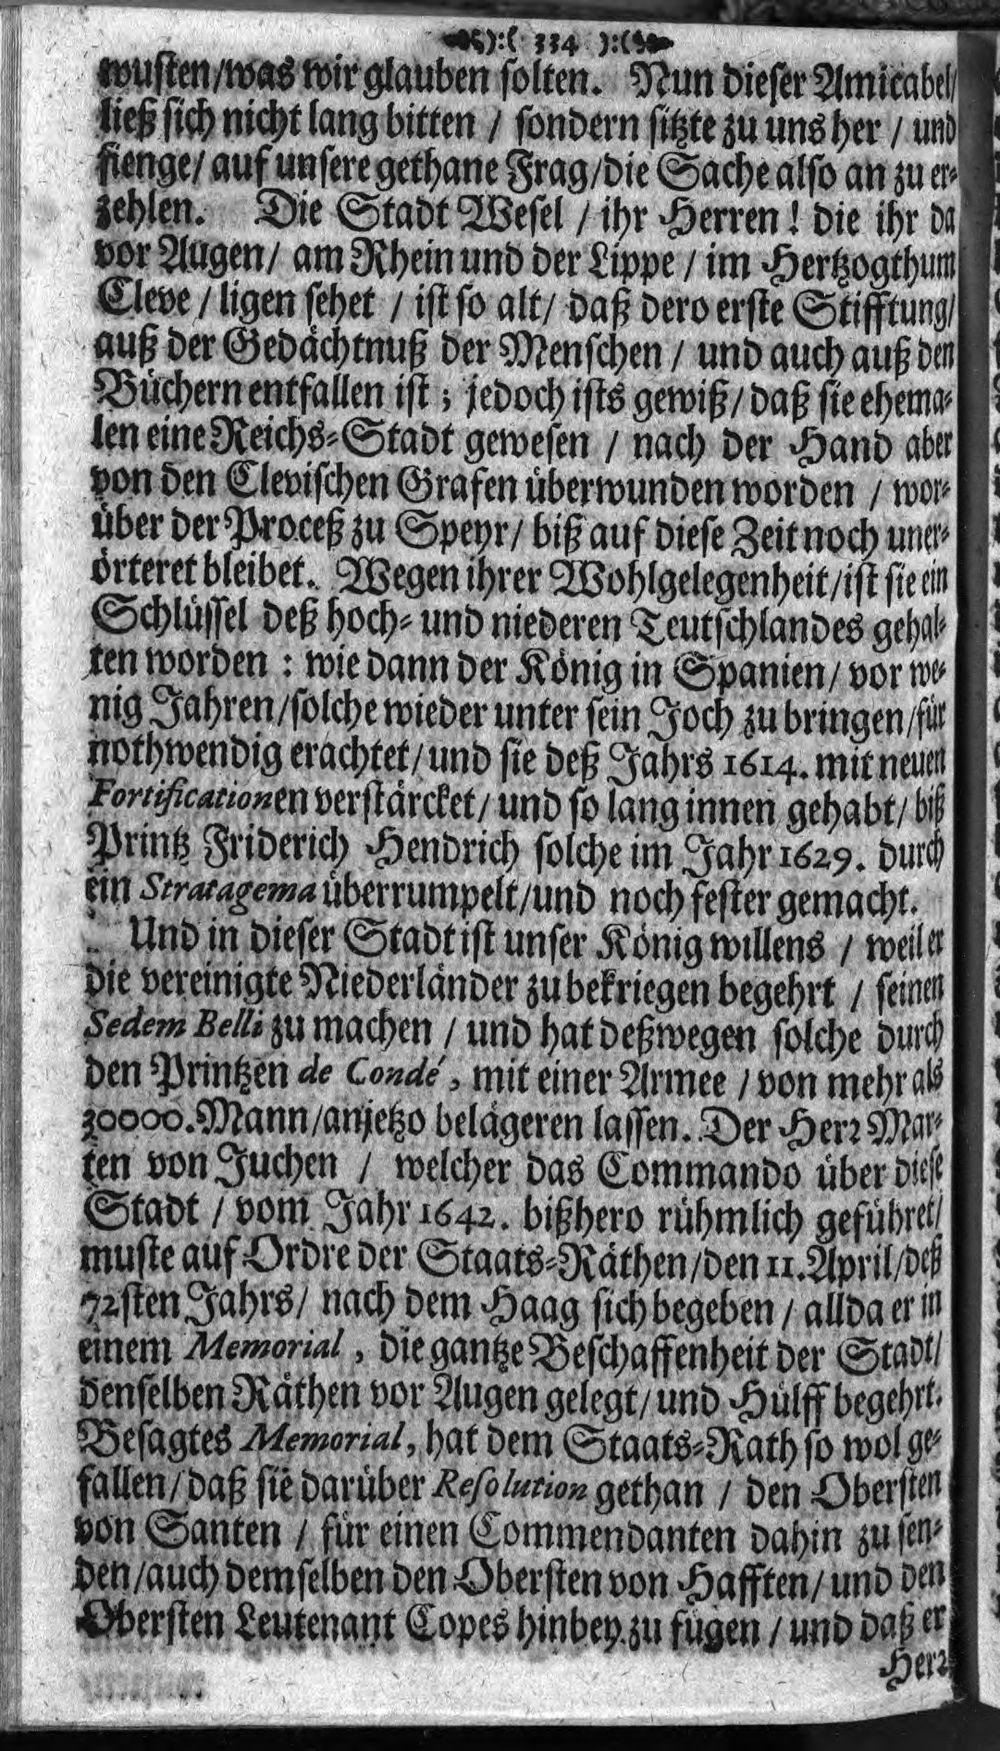 ):( 334 ):(
wusten/was wir glauben solten. Nun dieser Amicabel/
ließ sich nicht lang bitten / sondern sitzte zu uns her / und
fienge/ auf unsere gethane Frag/die Sache also an zu er-
zehlen. Die Stadt Wesel / ihr Herren! die ihr da
vor Augen/ am Rhein und der Lippe / im Hertzogthum
Cleve / ligen sehet / ist so alt/ daß dero erste Stifftung/
auß der Gedächtnuß der Menschen / und auch auß den
Büchern entfallen ist; jedoch ists gewiß/ daß sie ehema-
len eine Reichs-Stadt gewesen / nach der Hand aber
von den Clevischen Grafen überwunden worden / wor-
über der Proceß zu Speyr/ biß auf diese Zeit noch uner-
örteret bleibet. Wegen ihrer Wohlgelegenheit/ist sie ein
Schlüssel deß hoch- und niederen Teutschlandes gehal-
ten worden: wie dann der König in Spanien/ vor we-
nig Jahren/solche wieder unter sein Joch zu bringen/für
nothwendig erachtet/und sie deß Jahrs 1614. mit neuen
Fortificationen verstärcket/ und so lang innen gehabt/ biß
Printz Friderich Hendrich solche im Jahr 1629. durch
ein Stratagema überrumpelt/und noch fester gemacht.
Und in dieser Stadt ist unser König willens / weil er
die vereinigte Niederländer zu bekriegen begehrt / seinen
Sedem Belli zu machen / und hat deßwegen solche durch
den Printzen de Condé, mit einer Armee / von mehr als
30000. Mann/anjetzo belägeren lassen. Der Herr Mar-
ten von Juchen / welcher das Commando über diese
Stadt / vom Jahr 1642. bißhero rühmlich geführet/
muste auf Ordre der Staats-Räthen/den 11. April/deß
72sten Jahrs/ nach dem Haag sich begeben / allda er in
einem Memorial, die gantze Beschaffenheit der Stadt/
denselben Räthen vor Augen gelegt/und Hülff begehrt.
Besagtes Memorial, hat dem Staats-Rath so wol ge-
fallen/daß sie darüber Resolution gethan / den Obersten
von Santen / für einen Commendanten dahin zu sen-
den/auch demselben den Obersten von Hafften/ und den
Obersten Leutenant Copes hinbey zu fügen / und daß er
Herr